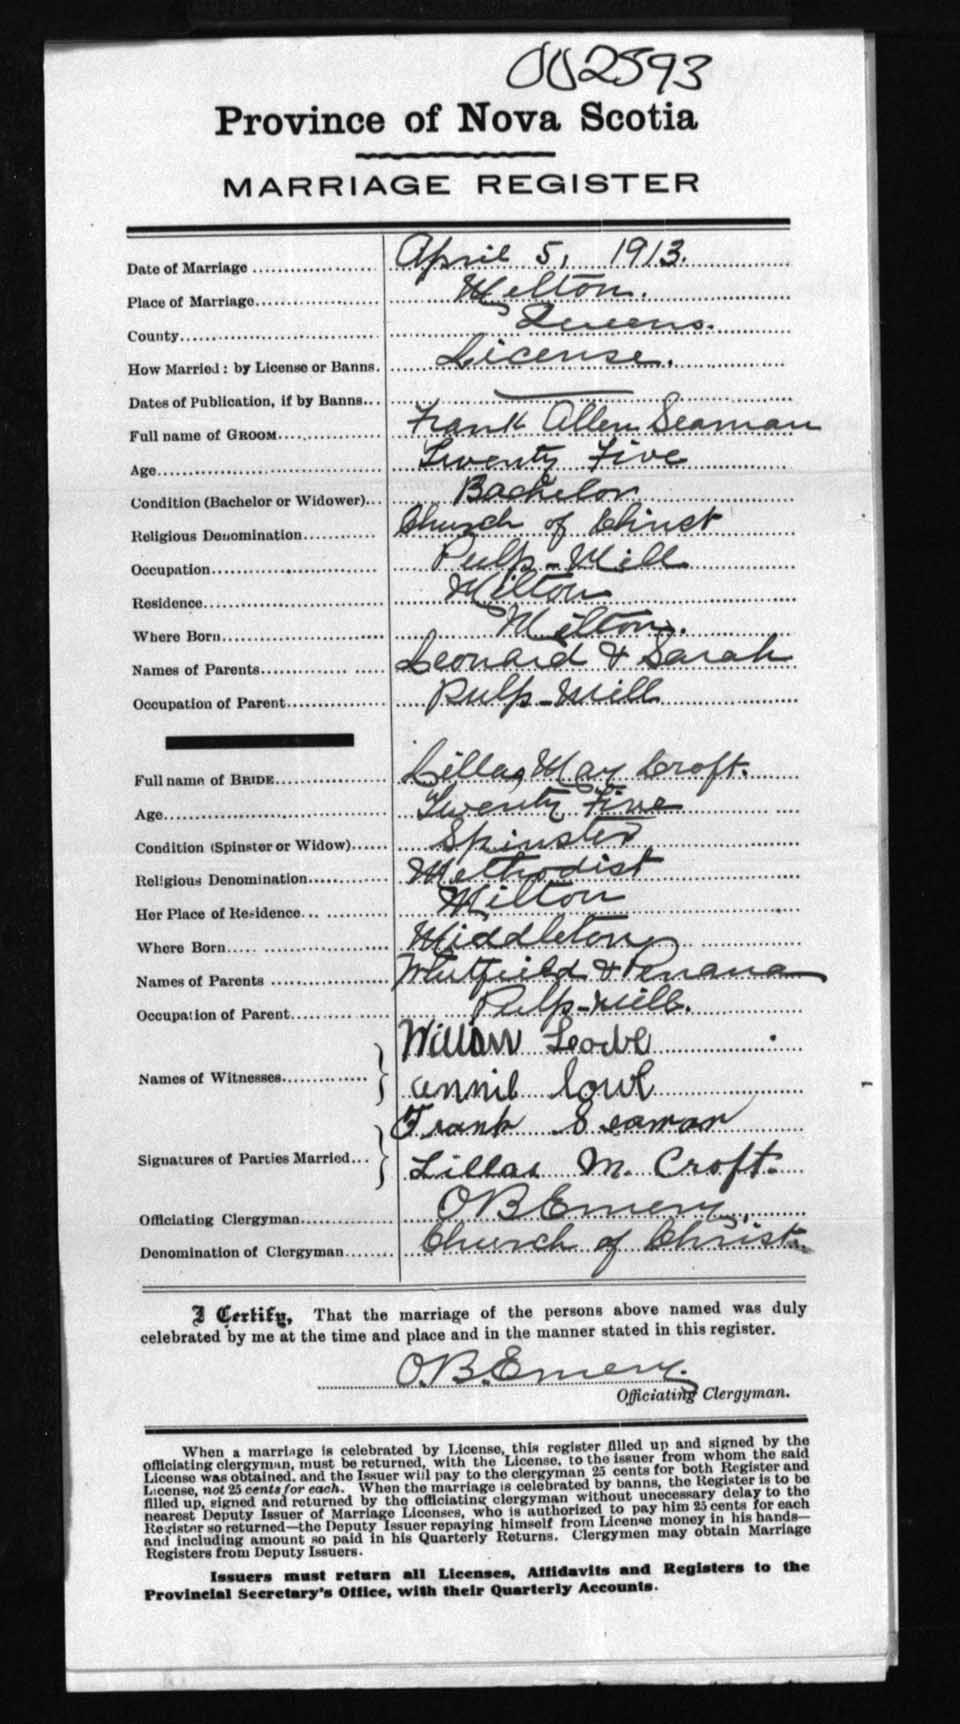 002593
Province of Nova Scotia
MARRIAGE REGISTER
Date of Marriage April 5, 1913.
Place of Marriage Milton.
County Queens.
How Married: by License or Banns. License.
Dates of Publication, if by Banns
Full name of GROOM Frank Allen Seaman
Age Twenty Five
Condition (Bachelor or Widower) Bachelor
Religious Denomination Church of Christ
Occupation Pulp-Mill
Residence Milton
Where Born Milton.
Names of Parents Leonard & Sarah
Occupation of Parent Pulp-Mill
Full name of BRIDE Lillas May Croft.
Age Twenty Five
Condition (Spinster or Widow) Spinster
Religious Denomination Methodist
Her Place of Residence Milton
Where Born Middleton
Names of Parents Whitfield &
Occupation of Parent Pulp-mill.
William
Names of Witnesses Annie
Frank Seaman
Signatures of Parties Married Lillas M. Croft.
Officiating Clergyman O B Emery.
Denomination of Clergyman Church of Christ.
I Certify, That the marriage of the persons above named was duly
celebrated by me at the time and place and in the manner stated in this register.
O.B. Emery.
Officiating Clergyman.
When a marriage is celebrated by License, this register filled up and signed by the
officiating clergyman, must be returned, with the License, to the issuer from whom the said
License was obtained, and the Issuer will pay to the clergyman 25 cents for both Register and
License, not 25 cents for each. When the marriage is celebrated by banns, the Register is to be
filled up, signed and returned by the officiating clergyman without unecessary delay to the
nearest Deputy Issuer of Marriage Licenses, who is authorized to pay him 25 cents for each
Register so returned—the Deputy Issuer repaying himself from License money in his hands—
and including amount so paid in his Quarterly Returns. Clergymen may obtain Marriage
Registers from Deputy Issuers.
Issuers must return all Licenses, Affidavits and Registers to the
Provincial Secretary's Office, with their Quarterly Accounts.